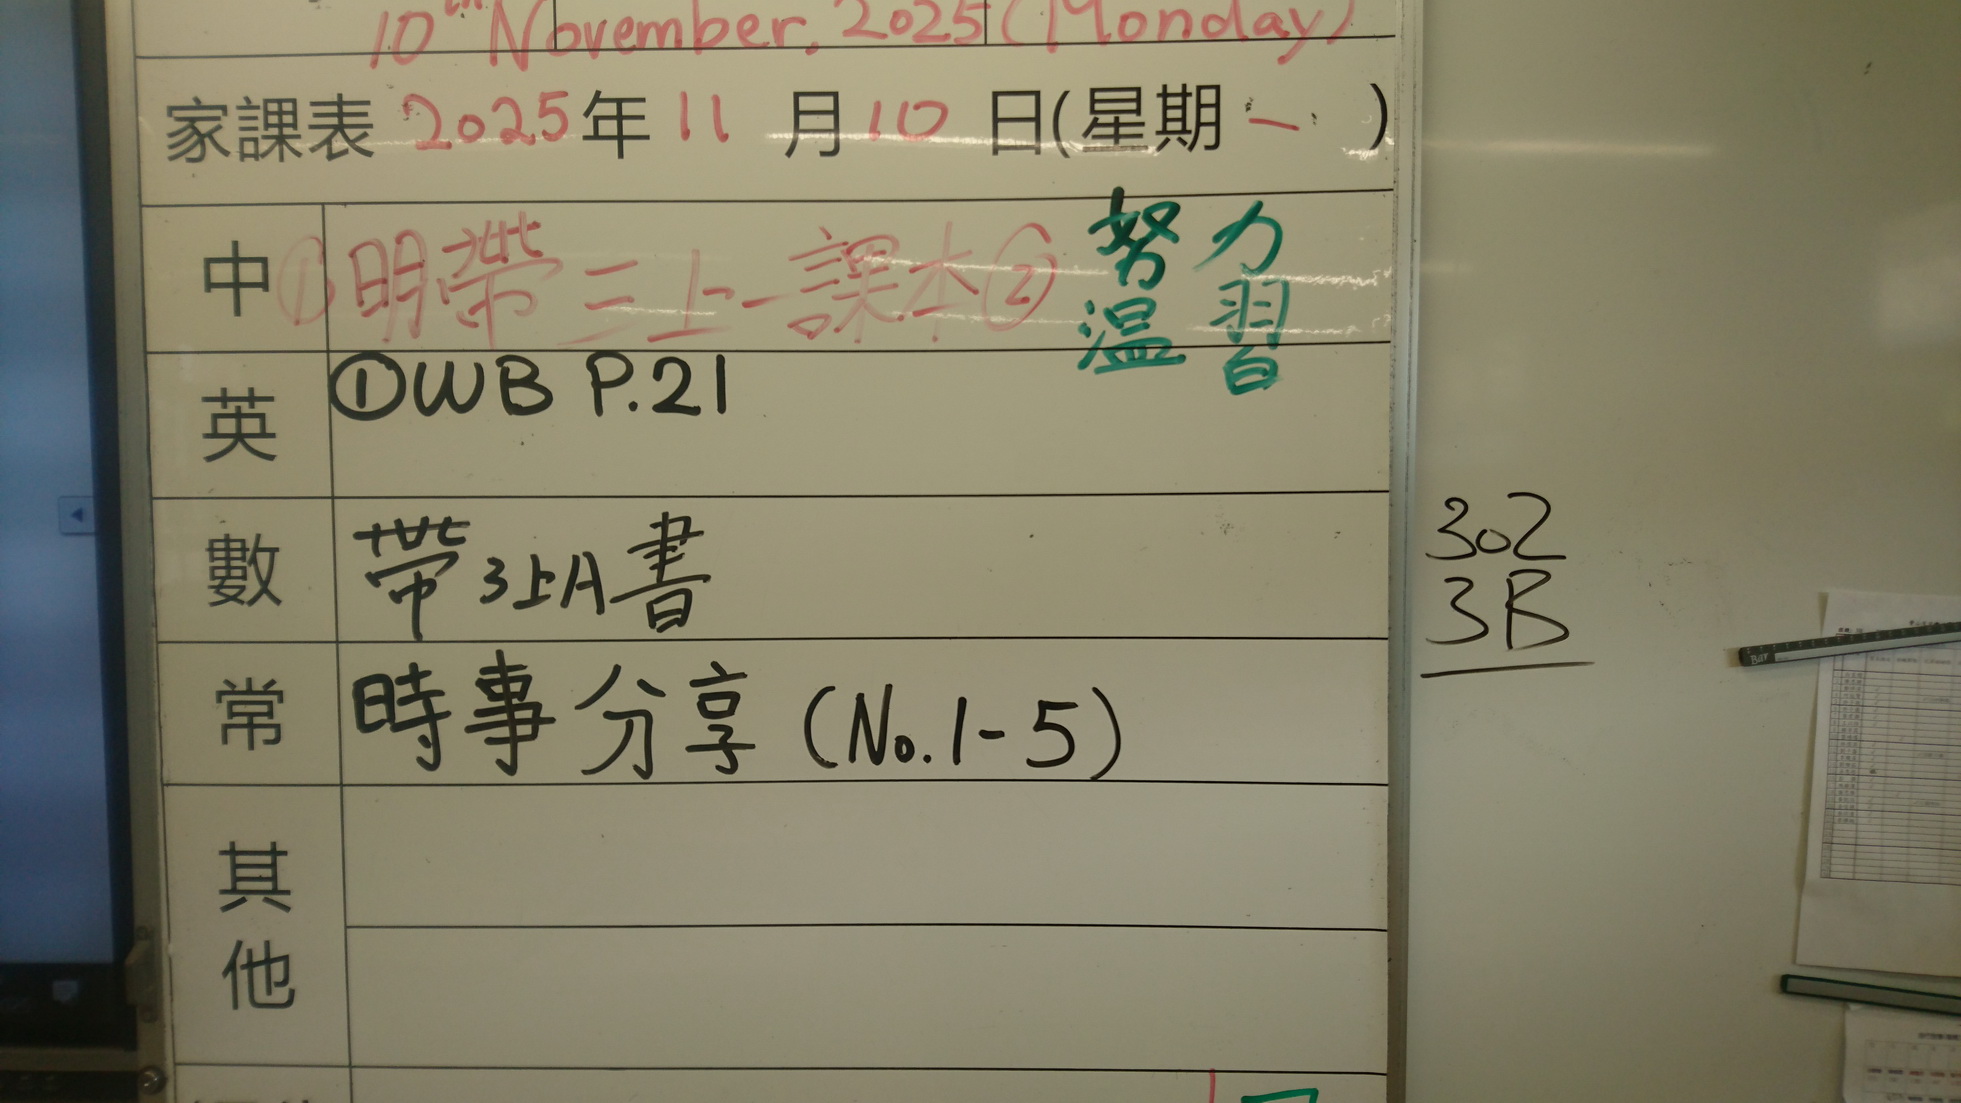 10th November, 2025 (Monday)
家課表 2025年 11 月 10 日(星期一 )
中 ① 明帶三上一課本② 努力
溫習
英 ①WB P.21
數 帶3上A書
常 時事分享 (No.1-5)
其他
302
3B